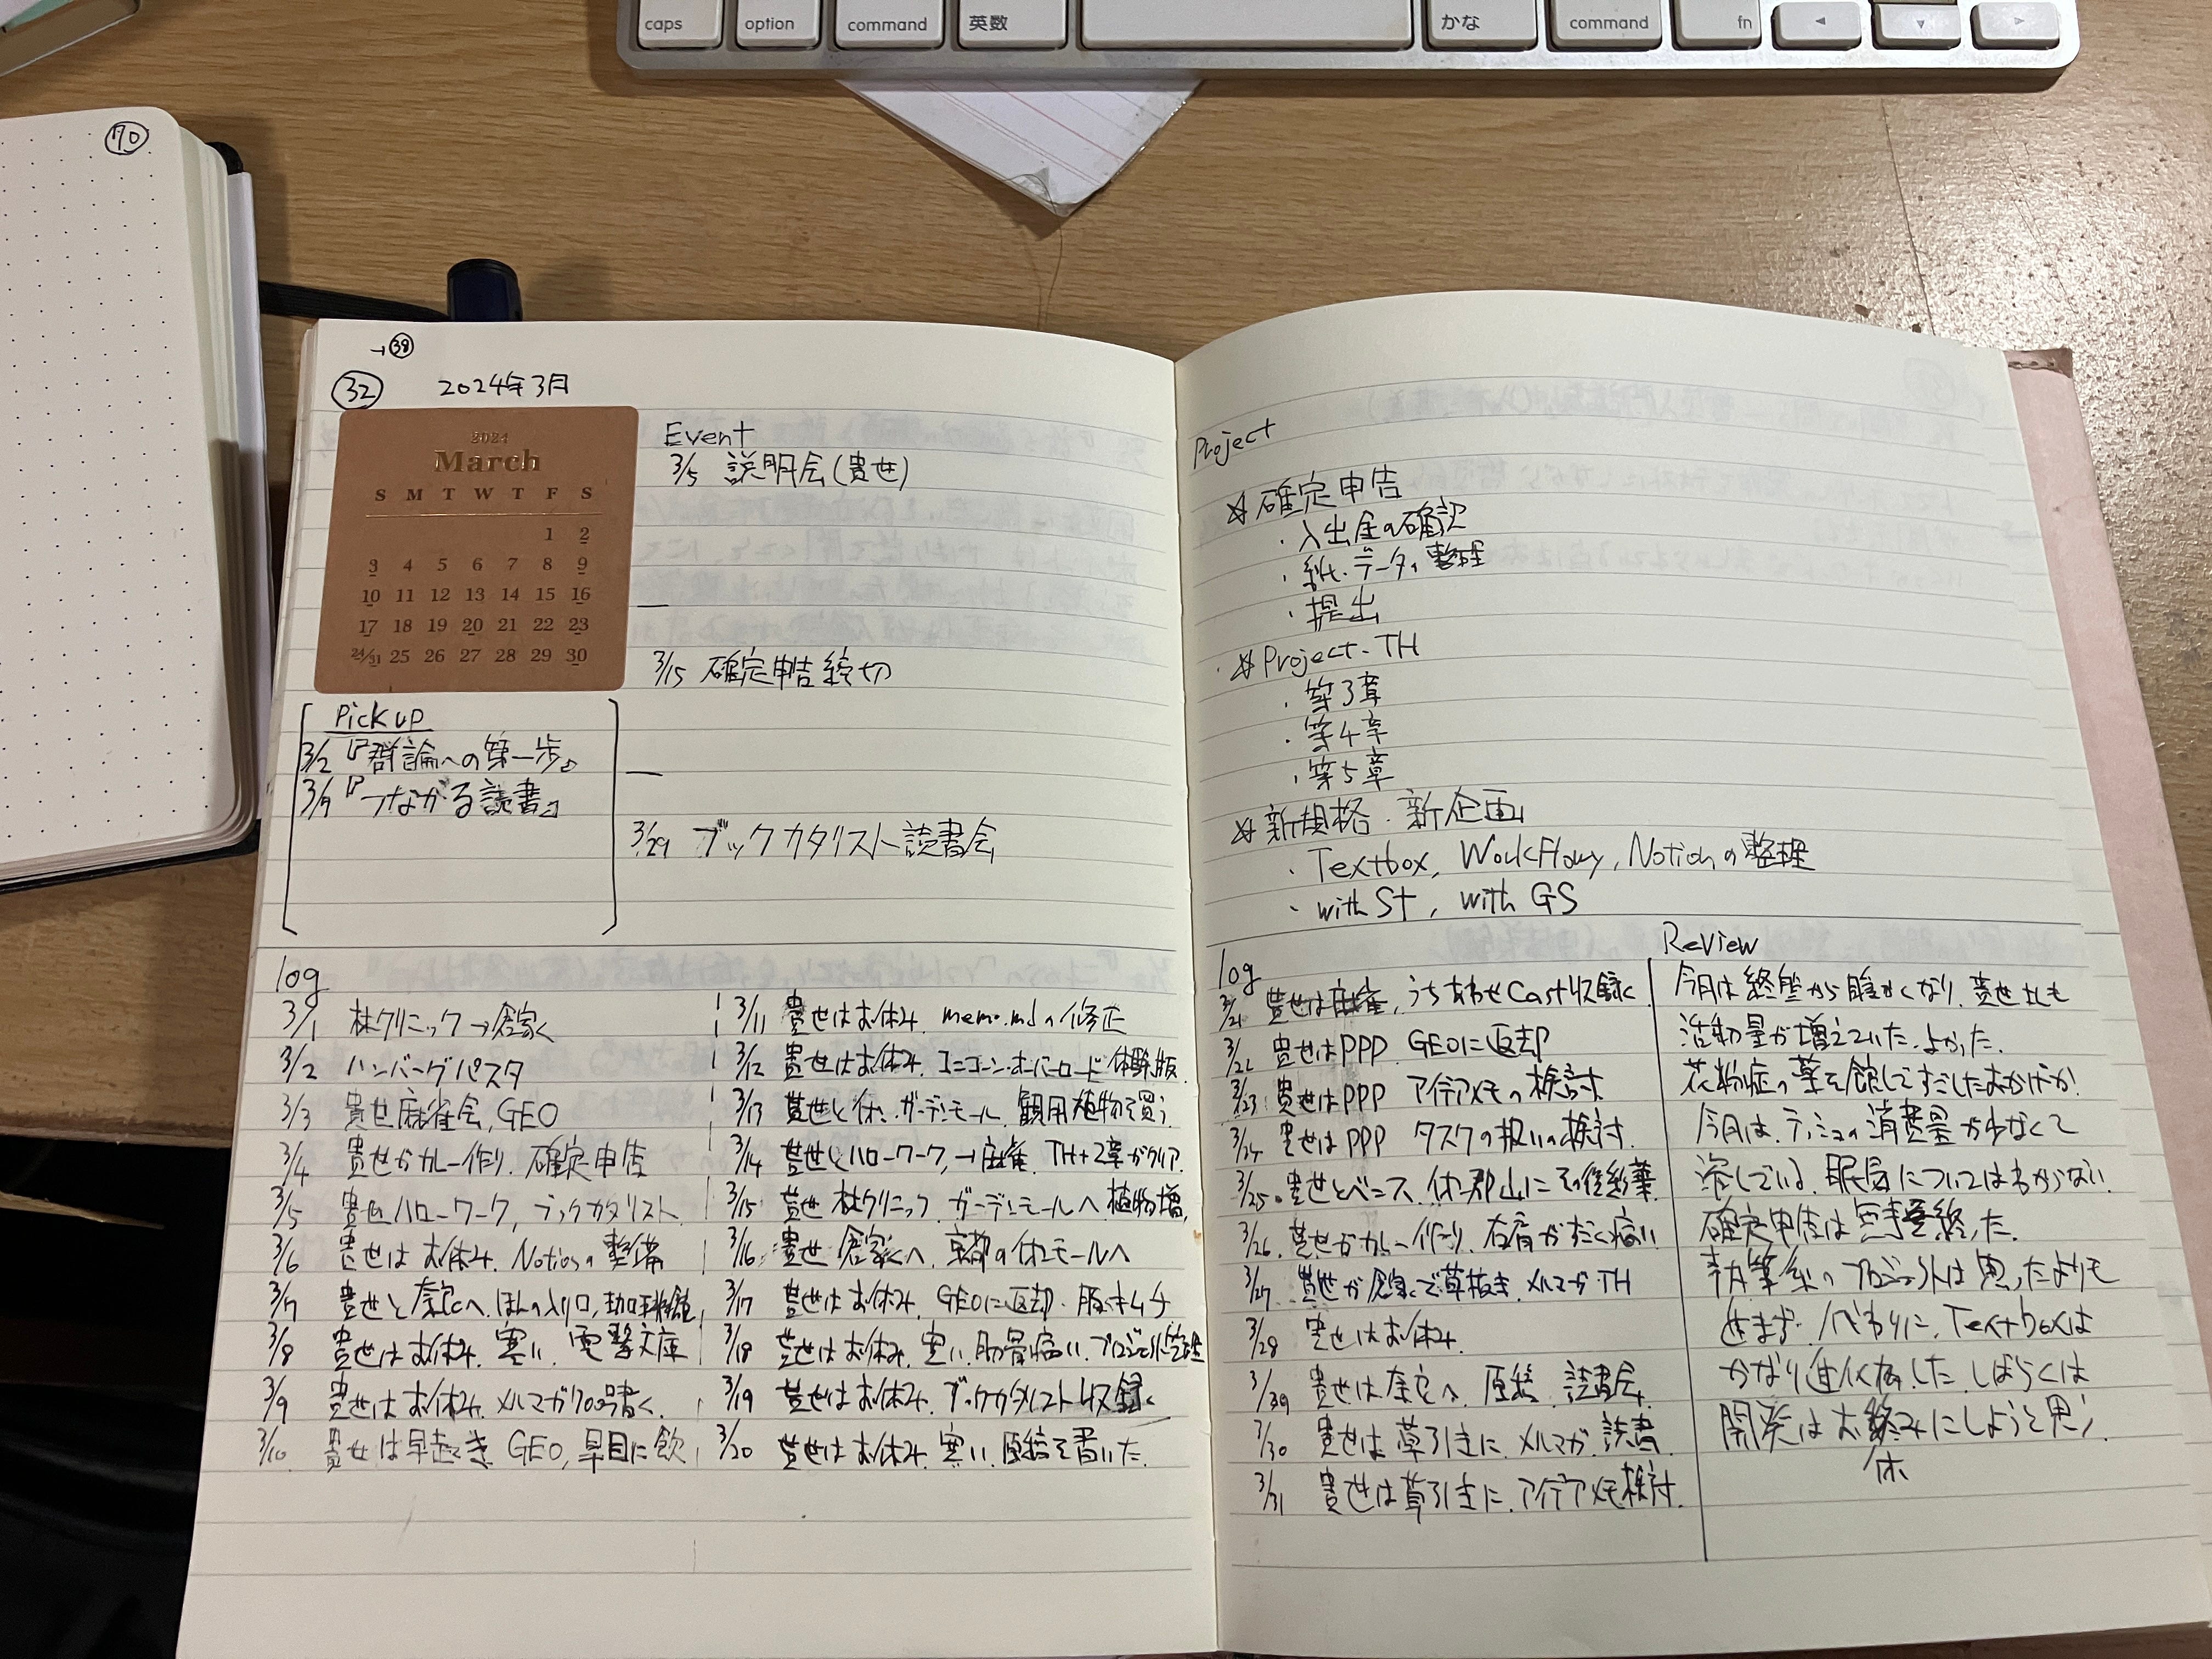 caps
option
command
英数
かな
command
fn
70
→38
32
2024年3月
2024
March
S M T W T F S
1 2
3 4 5 6 7 8 9
10 11 12 13 14 15 16
17 18 19 20 21 22 23
24/31 25 26 27 28 29 30
Event
3/5 説明会(貴世)
3/15 確定申告締切
3/29 ブックカタリスト読書会
Pick up
3/2『群論への第一歩』
3/9『つながる読書』
log
3/1 林クリニック→倉家へ
3/2 ハンバーグパスタ
3/3 貴世麻雀会, GEO
3/4 貴世がカレー作り. 確定申告
3/5 貴世ハローワーク, ブックカタリスト
3/6 貴世はお休み. Notionの整備
3/7 貴世と奈良へ. ほんの入り口,
3/8 貴世はお休み. 寒い. 電撃文庫
3/9 貴世はお休み. メルマガ700号書く.
3/10 貴世は早起き GEO, 早目に飲
3/11 貴世はお休み. memo.mdの修正
3/12 貴世はお休み. ユニコーンオーバーロード 体験版
3/13 貴世と休. ガーデンモール. 観用植物を買う
3/14 貴世とハローワーク, →麻雀. TH+2章がクリア.
3/15 貴世 林クリニック. ガーデンモールへ 植物増.
3/16 貴世 倉家へ. 京都のモールへ
3/17 貴世はお休み. GEOに返却.
3/18 貴世はお休み. 寒い. 肋骨痛い. プロジェクト管理
3/19 貴世はお休み. ブックカタリスト収録.
3/20 貴世はお休み. 寒い. 原稿を書いた.
Project
☆確定申告
・入出金の確認
・紙、データの整理
・提出
☆Project-TH
・第3章
・第4章
・第5章
☆新規格・新企画
・Textbox, WorkFlowy, Notionの整理
・with St, with GS
log
3/21 貴世は麻雀, うちあわせCast収録
3/22 貴世はPPP. GEOに返却
3/23 貴世はPPP アイデアメモの検討
3/24 貴世は PPP タスクの扱いの検討.
3/25 貴世と
3/26. 貴世がカレー作り. 右肩がすごく痛い
3/27. 貴世が倉家で草抜き. メルマガ TH
3/28 貴世はお休み.
貴世は奈良へ. 原稿. 読書会.
3/30 貴世は草引きに. メルマガ. 読書.
3/31 貴世は草引きに. アイデアメモ検討.
Review
今月は終盤から暖かくなり. 貴世
活動量が増えていた. よかった.
花粉症の薬を飲んですごしたおかげか.
今月は, ティッシュの消費量が少なくて
済している. 眠気についてはわからない.
確定申告は無事終った.
執筆系のプロジェクトは思ったよりも
進まず. 代わりに, Textboxは
かなり進化した. しばらくは
開発はお休みにしようと思う.
休